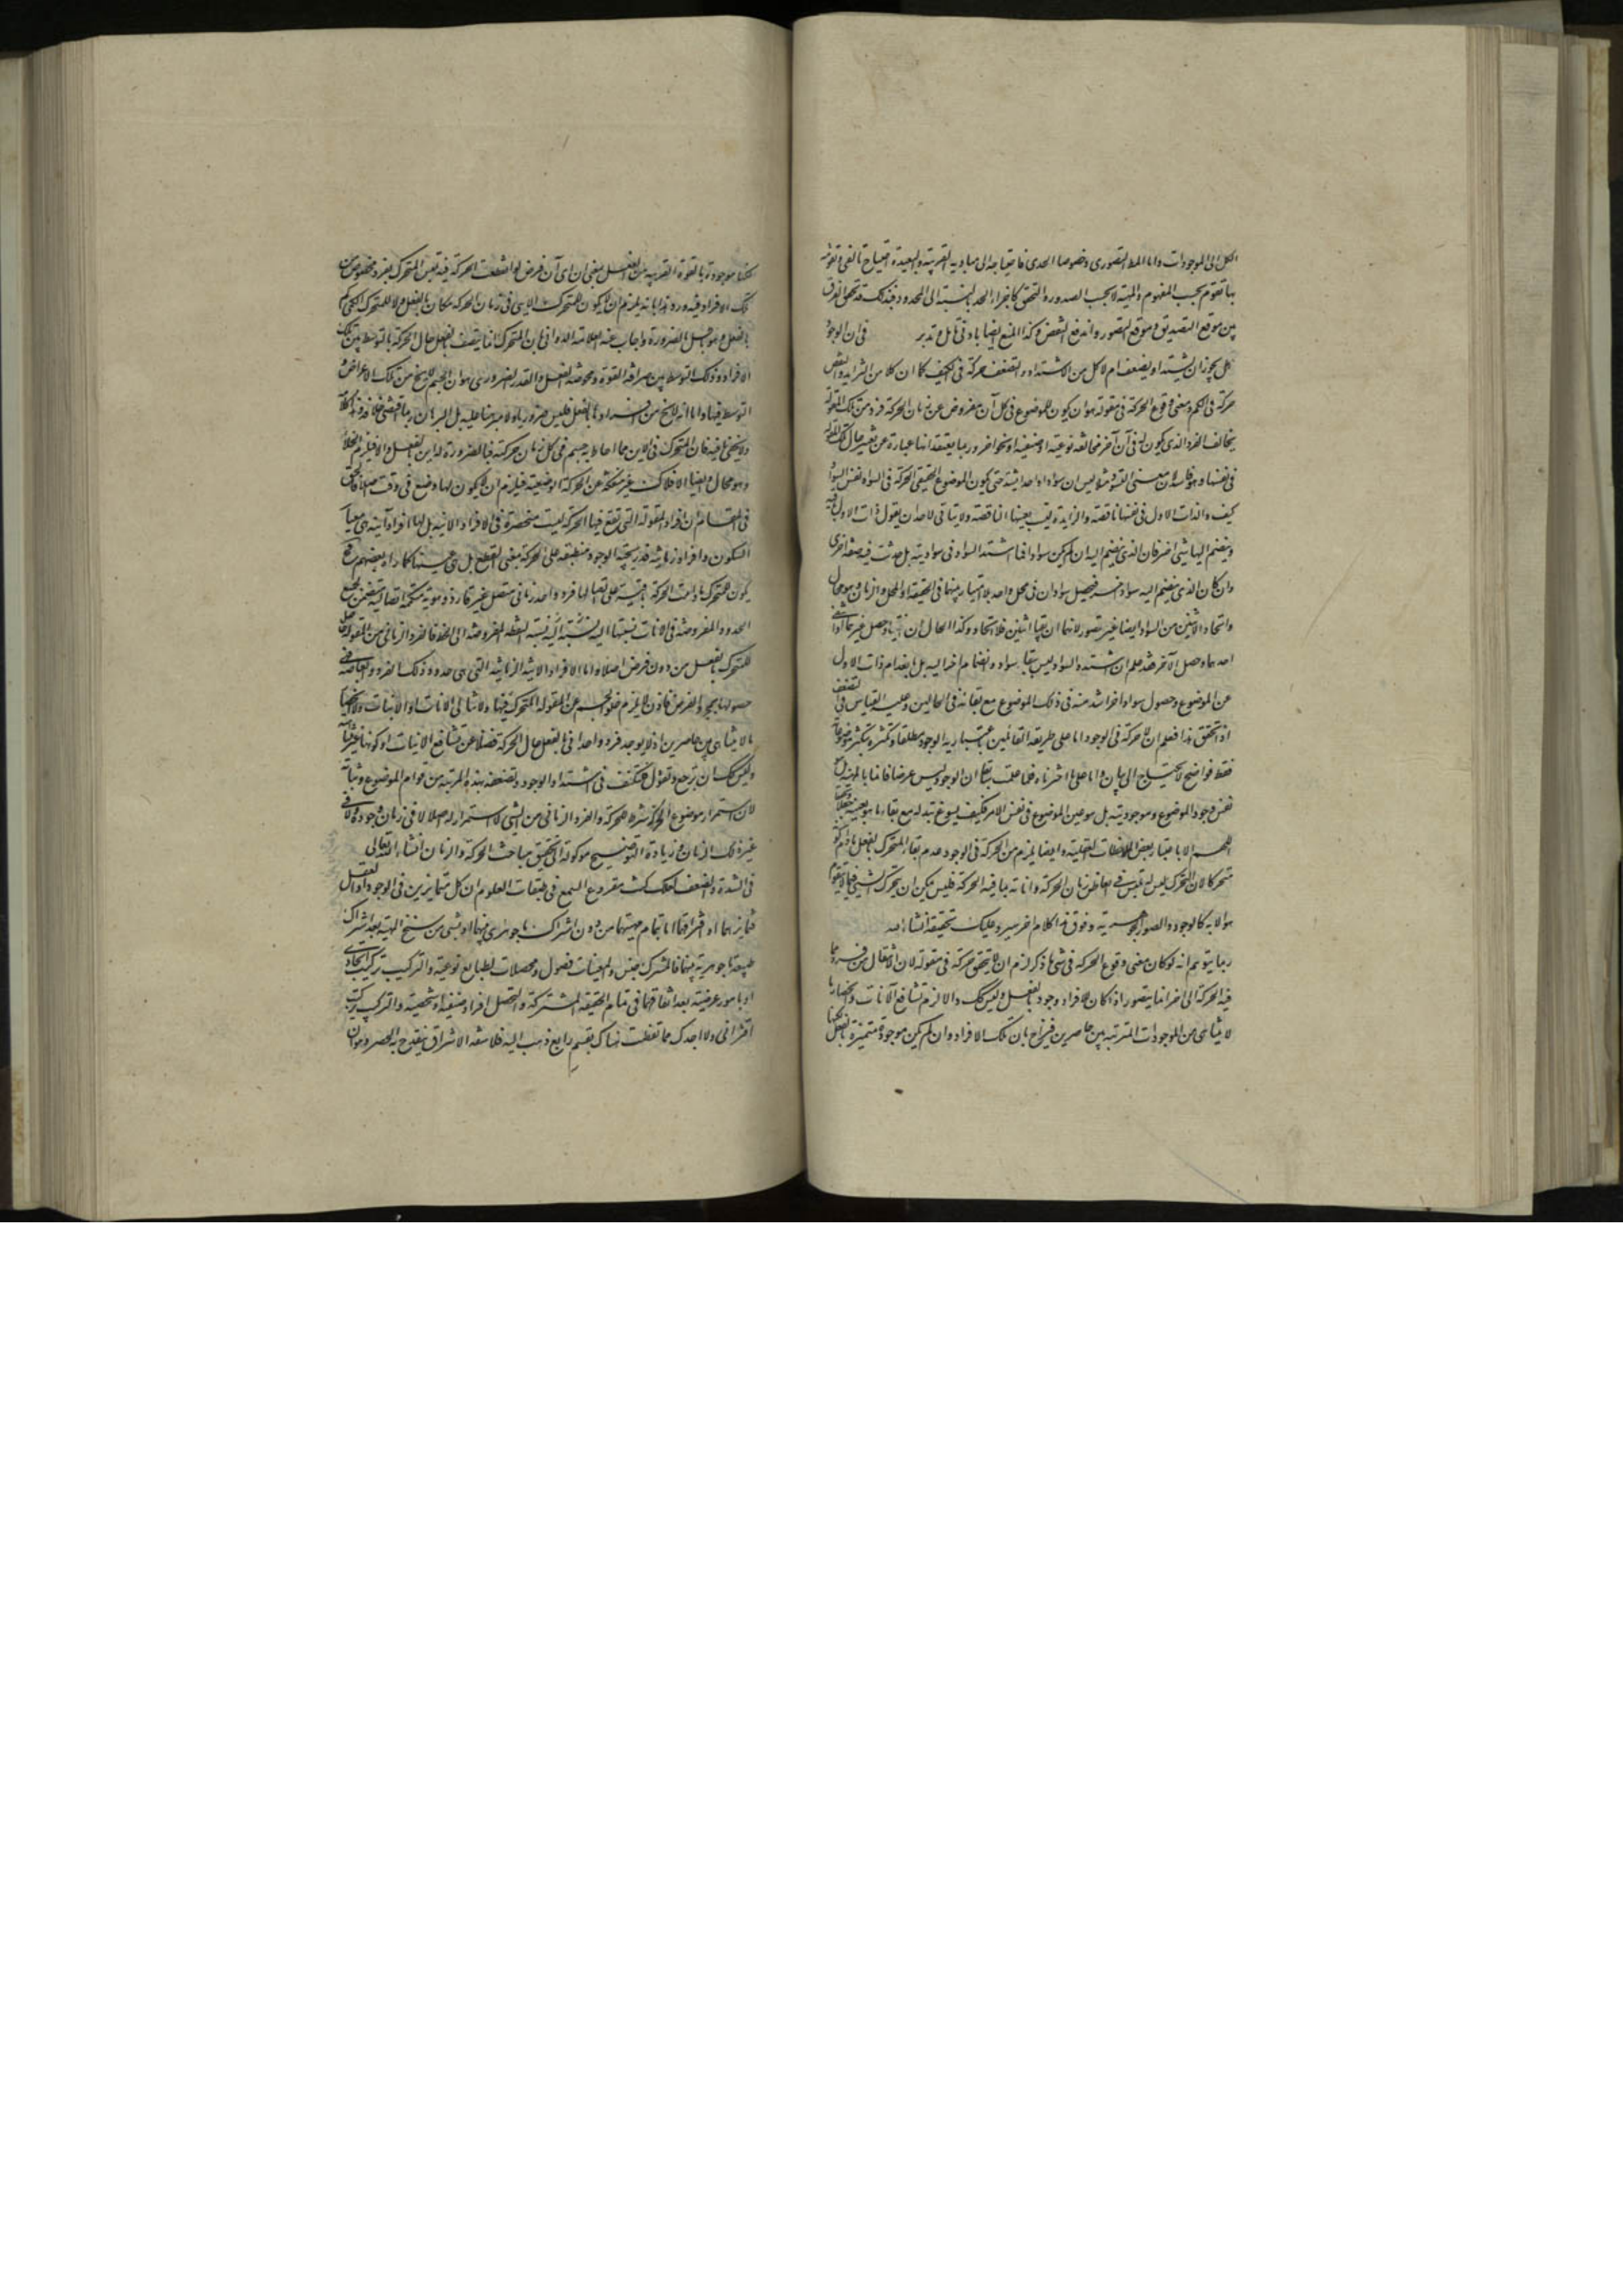 الكل الى الموجودات واما المط التصوري وخصوصا الحدي فاحتياجه الى مباديه القريبة والبعيدة احتياج تالفي تقوّمه
بها تقوم بحسب المفهوم والمهية لا بحسب الصدور والتحقق كاجزاء الحد بالنسبة الى المحدود فبذلك قد تحقق الفرق
بين موقع التصديق وموقع التصور واندفع النقض وكذا المنع ايضا بادنى تامل وتدبر في ان الوجود
هل يجوز ان يشتد او يضعف ام لا كل من الاشتداد والتضعف حركة في الكيف كما ان كلا من التزايد والتنقص
حركة في الكم ومعنى وقوع الحركة في مقولة هو ان يكون للموضوع في كل آن مفروض من زمان الحركة فرد من تلك المقولة
يخالف الفرد الذي يكون له في آن آخر مخالفة نوعية او صنفية او نحوا آخر وربما يعتقد انها عبارة عن تغير حال تلك المقولة
في نفسها وهو فاسد لان معنى التسود مثلا ليس ان سوادا واحدا يشتد حتى يكون الموضوع الحقيقي للحركة في السواد نفس السواد
كيف وذات الاول في نفسها ناقصة والزايدة ليست بعينها الناقصة ولا يتاتى لاحد ان يقول ذات الاول باقية
وينضم اليها شيء آخر فان الذي ينضم اليه ان لم يكن سوادا فما اشتد السواد في سواديته بل حدثت فيه صفة اخرى
وان كان الذي ينضم اليه سوادا آخر فيحصل سوادان في محل واحد بلا امتياز بينهما في الحقيقة او المحل والزمان وهو محال
واتحاد الاثنين من السواد ايضا غير متصور لانهما ان بقيا اثنين فلا اتحاد وكذا الحال ان انتفيا وحصل غيرهما او انتفى
احدهما وحصل الآخر فقد علم ان اشتداد السواد ليس ببقاء سواد وانضمام آخر اليه بل بانعدام ذات الاول
عن الموضوع وحصول سواد آخر اشد منه في ذلك الموضوع مع بقائه في الحالين وعليه القياس في التضعف
اذا تحقق هذا فعلم ان لا حركة في الوجود اما على طريقة القائلين باعتبارية الوجود مطلقا وتكثره بتكثر موضوعاته
فقط فواضح لا يحتاج الى بيان واما على ما اخترناه فلما علمت سابقا ان الوجود ليس عرضا قائما بالمهية بل هو
نفس وجود الموضوع وموجوديته بل هو عين الموضوع في نفس الامر فكيف يسوغ تبدله مع بقاء ما هو بعينه
اللهم الا باعتبار بعض الملاحظات العقلية وايضا يلزم من الحركة في الوجود عدم بقاء المتحرك بالفعل ما دام كونه
متحركا لان المتحرك ليس له تلبس في ابعاض زمان الحركة وآناته بما فيه الحركة فليس يمكن ان يتحرك الشيء فيما لا يتقوم
هو الا به كالوجود والصور الجوهرية وفوق هذا كلام آخر سيرد عليك تحقيقه ان شاء الله
ربما يتوهم انه لو كان معنى وقوع الحركة في شيء ما ذكر لزم ان لا يتحقق حركة في مقولة لان الانتقال من فرد مما
فيه الحركة الى آخر انما يتصور اذا كان للافراد وجود بالفعل وليس كذلك والا لزم تشافع الآنات وانحصار ما
لا يتناهى من الموجودات المترتبة بين حاصرين فيزاح بان تلك الافراد وان لم يكن موجودة متميزة بالفعل لكنها
لكنها موجودة بالقوة القريبة من الفعل بمعنى ان اي آن فرض لو انقطعت الحركة فيه تلبس المتحرك بفرد مخصوص من
تلك الافراد فيه ورد هذا بانه يلزم ان لا يكون للمتحرك الايني في زمان الحركة مكان بالفعل ولا للمتحرك الكمي كم
بالفعل وهو باطل بالضرورة واجاب عنه العلامة الدواني بان المتحرك انما يتصف بالفعل حال الحركة بالتوسط بين تلك
الافراد وذلك التوسط بين صرافة القوة ومحوضة الفعل والقدر الضروري هو ان الجسم لا يخ من تلك الاعراض و
التوسط فيها واما انه لا يخ من افرادها بالفعل فليس ضروريا ولا مبرهنا عليه بل البرهان ربما اقتضى خلافه هذا كلامه
ولا يخفى ما فيه فان المتحرك في الاين مما احاط به جسم في كل زمان حركته فبالضرورة له اين بالفعل والا فيلزم الخلاء
وهو محال وايضا الافلاك غير منفكة عن الحركة الوضعية فيلزم ان لا يكون لها وضع في وقت اصلا فالحق
في المقام ان افراد المقولة التي تقع فيها الحركة ليست منحصرة في الافراد الآنية بل لها افراد آنية هي معيار
السكون وافراد زمانية تدريجية الوجود منطبقة على الحركة بمعنى القطع بل هي عينها كما رآه بعضهم فح
يكون للمتحرك ما دامت الحركة باقية على اتصالها فرد واحد زماني متصل غير قار ذو هوية متكممة اتصالية متضمن لجميع
الحدود المفروضة في الآنات نسبتها اليه نسبة النقط المفروضة الى الخط فالفرد الزماني من المقولة حاصل
للمتحرك بالفعل من دون فرض اصلا واما الافراد الآنية والزمانية التي هي حدود ذلك الفرد وابعاضه ففي
حصولها بمجرد الفرض فاذن لا يلزم خلو الجسم عن المقولة المتحرك فيها ولا تتالي الآنات او الآنيات ولا انحصار
ما لا يتناهى بين حاصرين اذ لا يوجد فرد واحد آني بالفعل حال الحركة فضلا عن تشافع الآنيات او كونها غير متناهية
وليس لك ان ترجع وتقول فلتكتف في اشتداد الوجود وتضعفه بهذه المرتبة من قوام الموضوع وثباته
لان استمرار موضوع الحركة شرط للحركة والفرد الزماني من الشيء لا استمرار له اصلا لا في زمان وجوده ولا في
غير ذلك الزمان وزيادة التوضيح موكولة الى تحقيق مباحث الحركة والزمان ان شاء الله تعالى
في الشدة والضعف لعلك كنت مقروع السمع في طبقات العلوم ان كل متمايزين في الوجود او العقل
فتمايزهما او افتراقهما اما بتمام مهيتهما من دون اشتراك ما جوهري بينهما او بشيء من سنخ المهية بعد اشتراك
طبيعة ما جوهرية بينهما فالمشترك جنس والمعينات فصول ومحصلات لطبايع نوعية والتركيب تركيب اتحادي
او بامور عرضية بعد اتفاقهما في تمام الحقيقة المشتركة والمتحصل افراد صنفية او شخصية والتركيب تركيب
اقتراني ولا اجدك مما تفطنت هناك بقسم رابع ذهب اليه فلاسفة الاشراق ينقدح به الحصر وهو ان